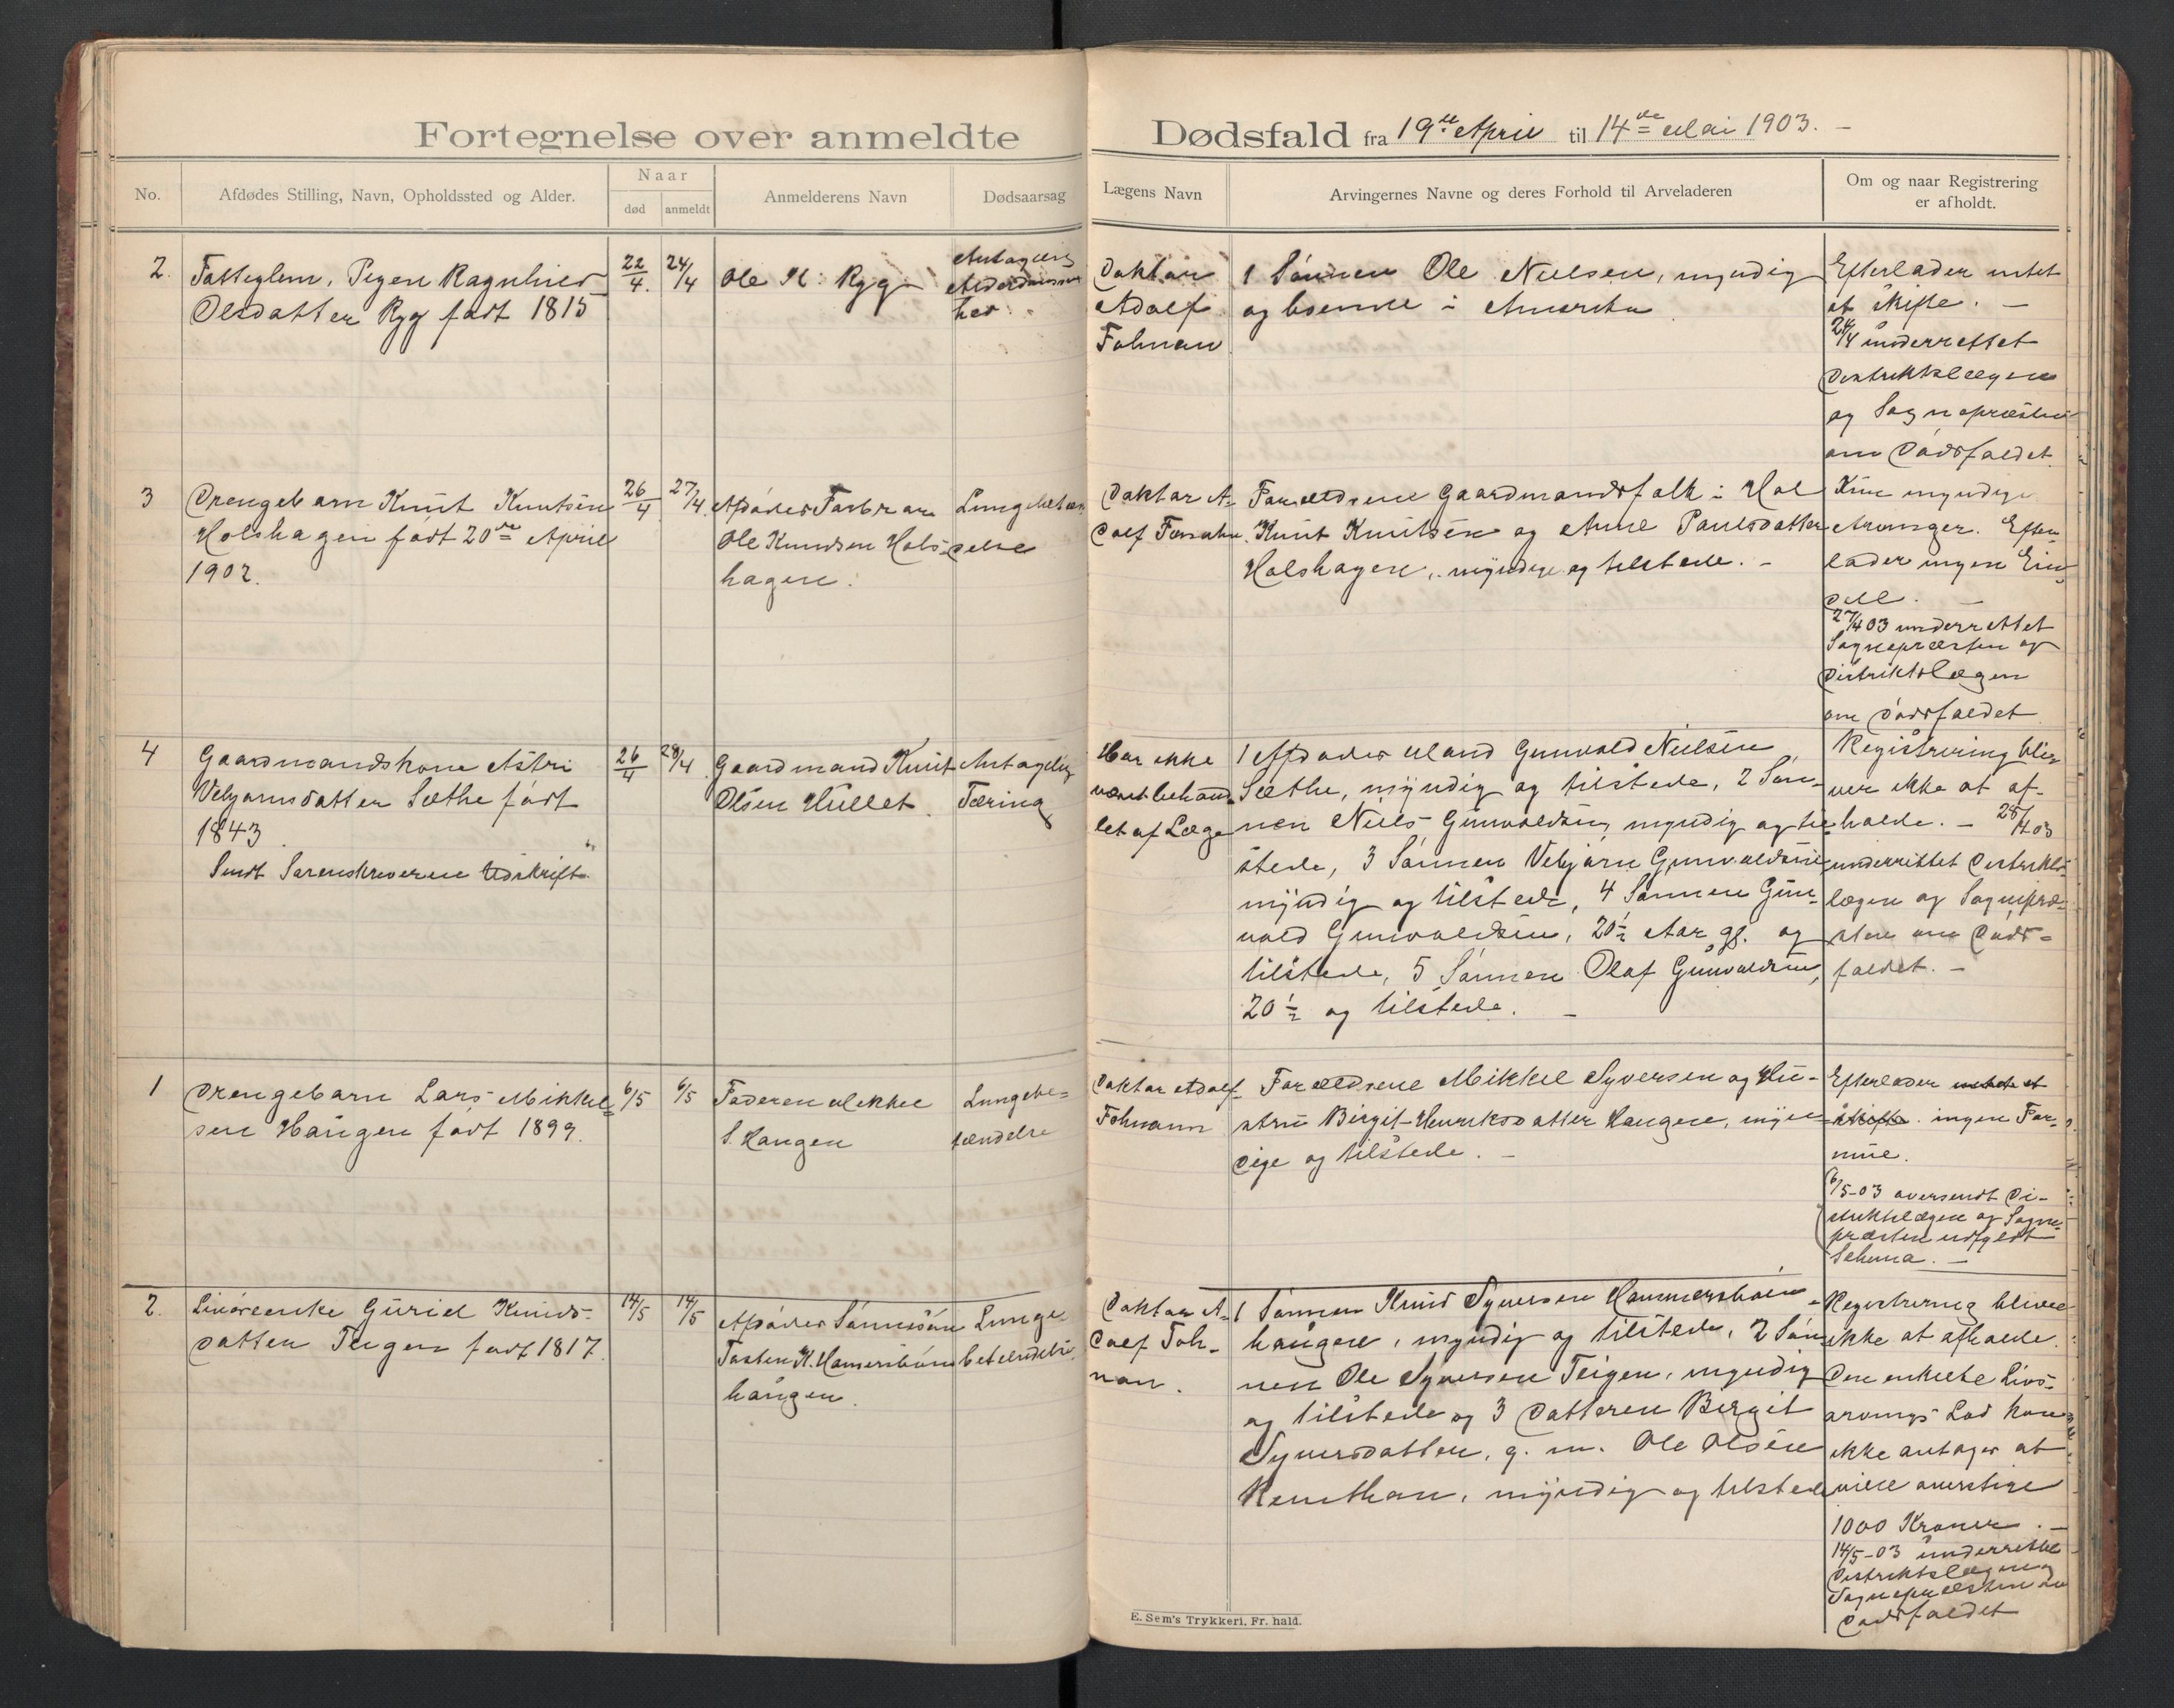 Fortegnelse over anmeldte
Dødsfald fra 19de April til 14de Mai 1903. –
No.
Afdødes Stilling, Navn, Opholdssted og Alder.
Naar
død
anmeldt
Anmelderens Navn
Dødsaarsag
Lægens Navn
Arvingernes Navne og deres Forhold til Arveladeren
Om og naar Registrering
er afholdt.
2.
Pigen Ragnhild
Olsdatter Ryg født 1815
22/4.
24/4
Ole K. Ryg
Antagelig
Alderdomssvag
hed.
Doktor
Adolf
1 Sønnen Ole Nielsen, myndig
og boende i Amerika
Efterlader intet
at skifte. –
24/4 underrettet
Distriktslægen
og Sognepræsten
om Dødsfaldet
3
Drengebarn Knut Knutsen
Holshagen født 20de April
1902.
26/4
27/4.
Afdødes Farbror
Ole Knudsen Hols-
hagen.
Lungebetæn
delse
Doktor A-
dolf
Forældrene Gaardmandsfolk i Hol
Knut Knutsen og Anne Paulsdatter
Holshagen, myndige og tilstede. –
Kun myndige
Arvinger. Efter
lader ingen Ein
dele. –
27/4 03 underrettet
Sognepræsten og
Distriktslægen
om Dødsfaldet
4
Gaardmandskone Astri
Vebjørnsdatter Sæthe født
1843.
Sendt Sorenskriveren Udskrift.
26/4
28/4.
Gaardmand Knut
Olsen Hullet.
Antagelig
Tæring
Har ikke
været behand
let af Læge
1 Afdødes Mand Gunvald Nielsen
Sæthe, myndig og tilstede, 2 Søn-
nen Niels Gunvaldsen, myndig og til
stede, 3 Sønnen Vebjørn Gunvaldsen
myndig og tilstede, 4 Sønnen Gun-
vald Gunvaldsen, 20½ Aar gl. og
tilstede, 5 Sønnen Olaf Gunvaldsen,
20½ og tilstede. –
Registrering bli
ver ikke at af-
holde. – 28/4 03
underrettet Distrikts-
lægen og Sognepræ-
sten om Døds-
faldet. –
1
Drengebarn Lars Mikkel-
sen Haugen født 1899.
6/5
6/5
Faderen Mikkel
S. Haugen
Lungebe-
tændelse
Doktor Adolf
Forældrene Mikkel Syversen og Hu-
stru Birgit Henriksdatter Haugen, myn-
dige og tilstede. –
Efterlader intet at
skifte. ingen For-
mue.
6/5-03 oversendt Di-
striktslægen og Sogne-
præsten udfyldt
Schema. –
2.
Guriel Knuds-
datter Teigen født 1817.
14/5
14/5
Afdødes Sønnesøn
haugen.
Lunge-
betændelse.
Doktor A-
dolf
1 Sønnen Knud Syversen Hammersbøen-
haugen, myndig og tilstede, 2 Søn
nen Ole Syversen Teigen, myndig
og tilstede og 3 Datteren Birgit
Syversdatter, g. m. Ole Olsen
myndig og tilstede
Registrering bliver
ikke at afholde.
Den enkelte Livs-
arvings Lod kan
ikke antages at
ville overstige
1000 Kroner. –
14/5-03 underrettet
Distriktslægen og
Sognepræsten om
Dødsfaldet
E. Sem's Trykkeri, Fr. hald.